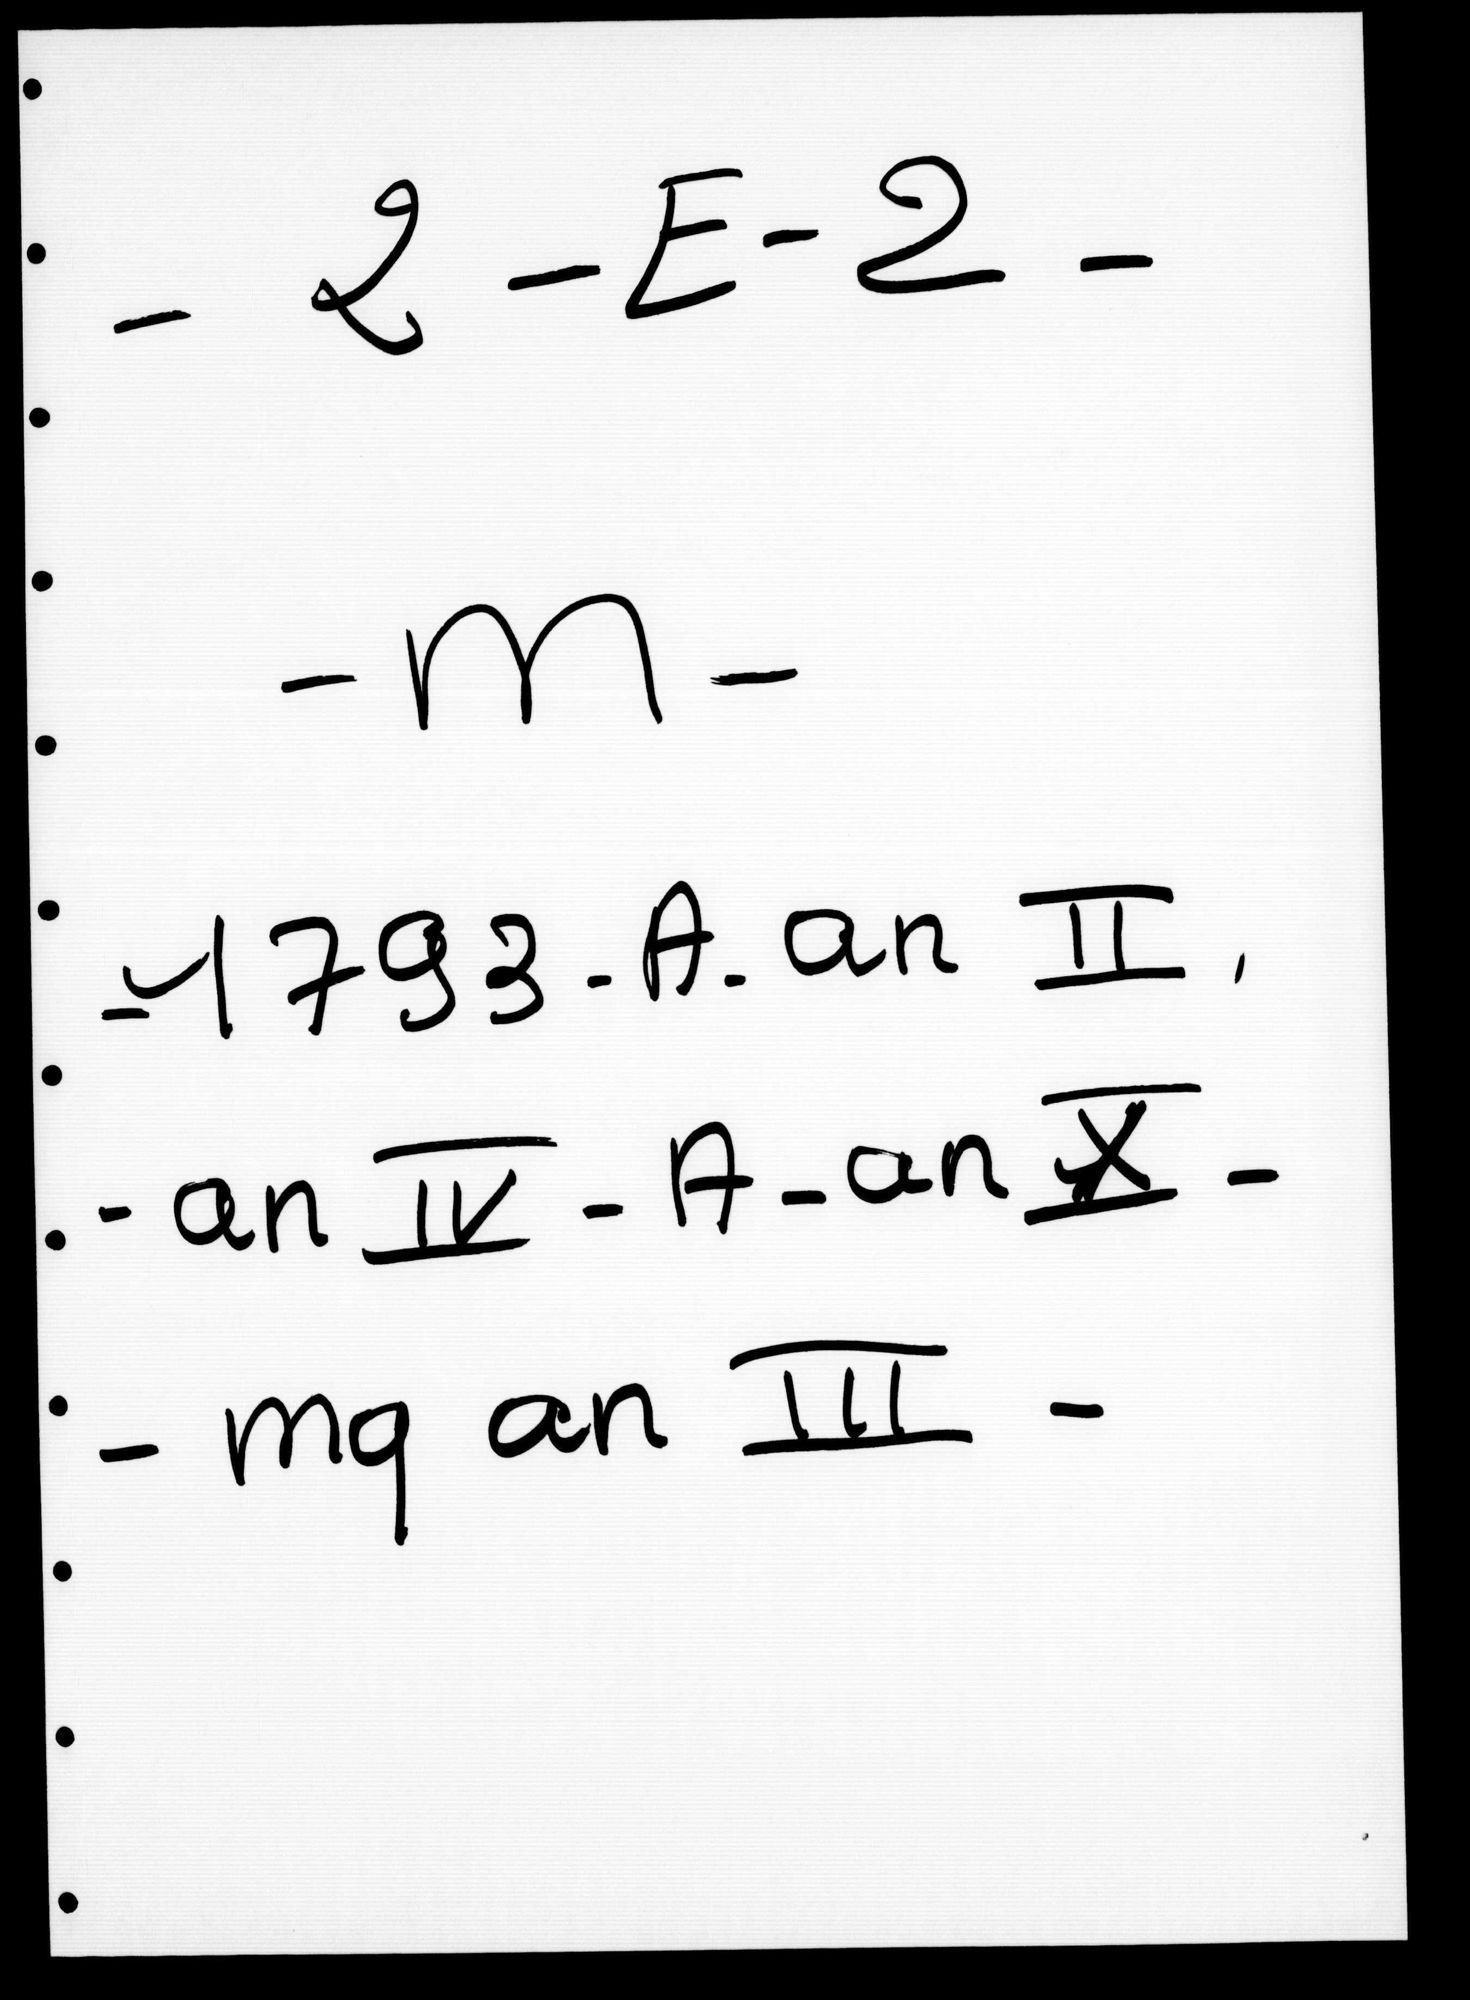 - 2 - E - 2 -
- M -
- 1793 - A - an II,
- an IV - A - an X -
- mq an III -